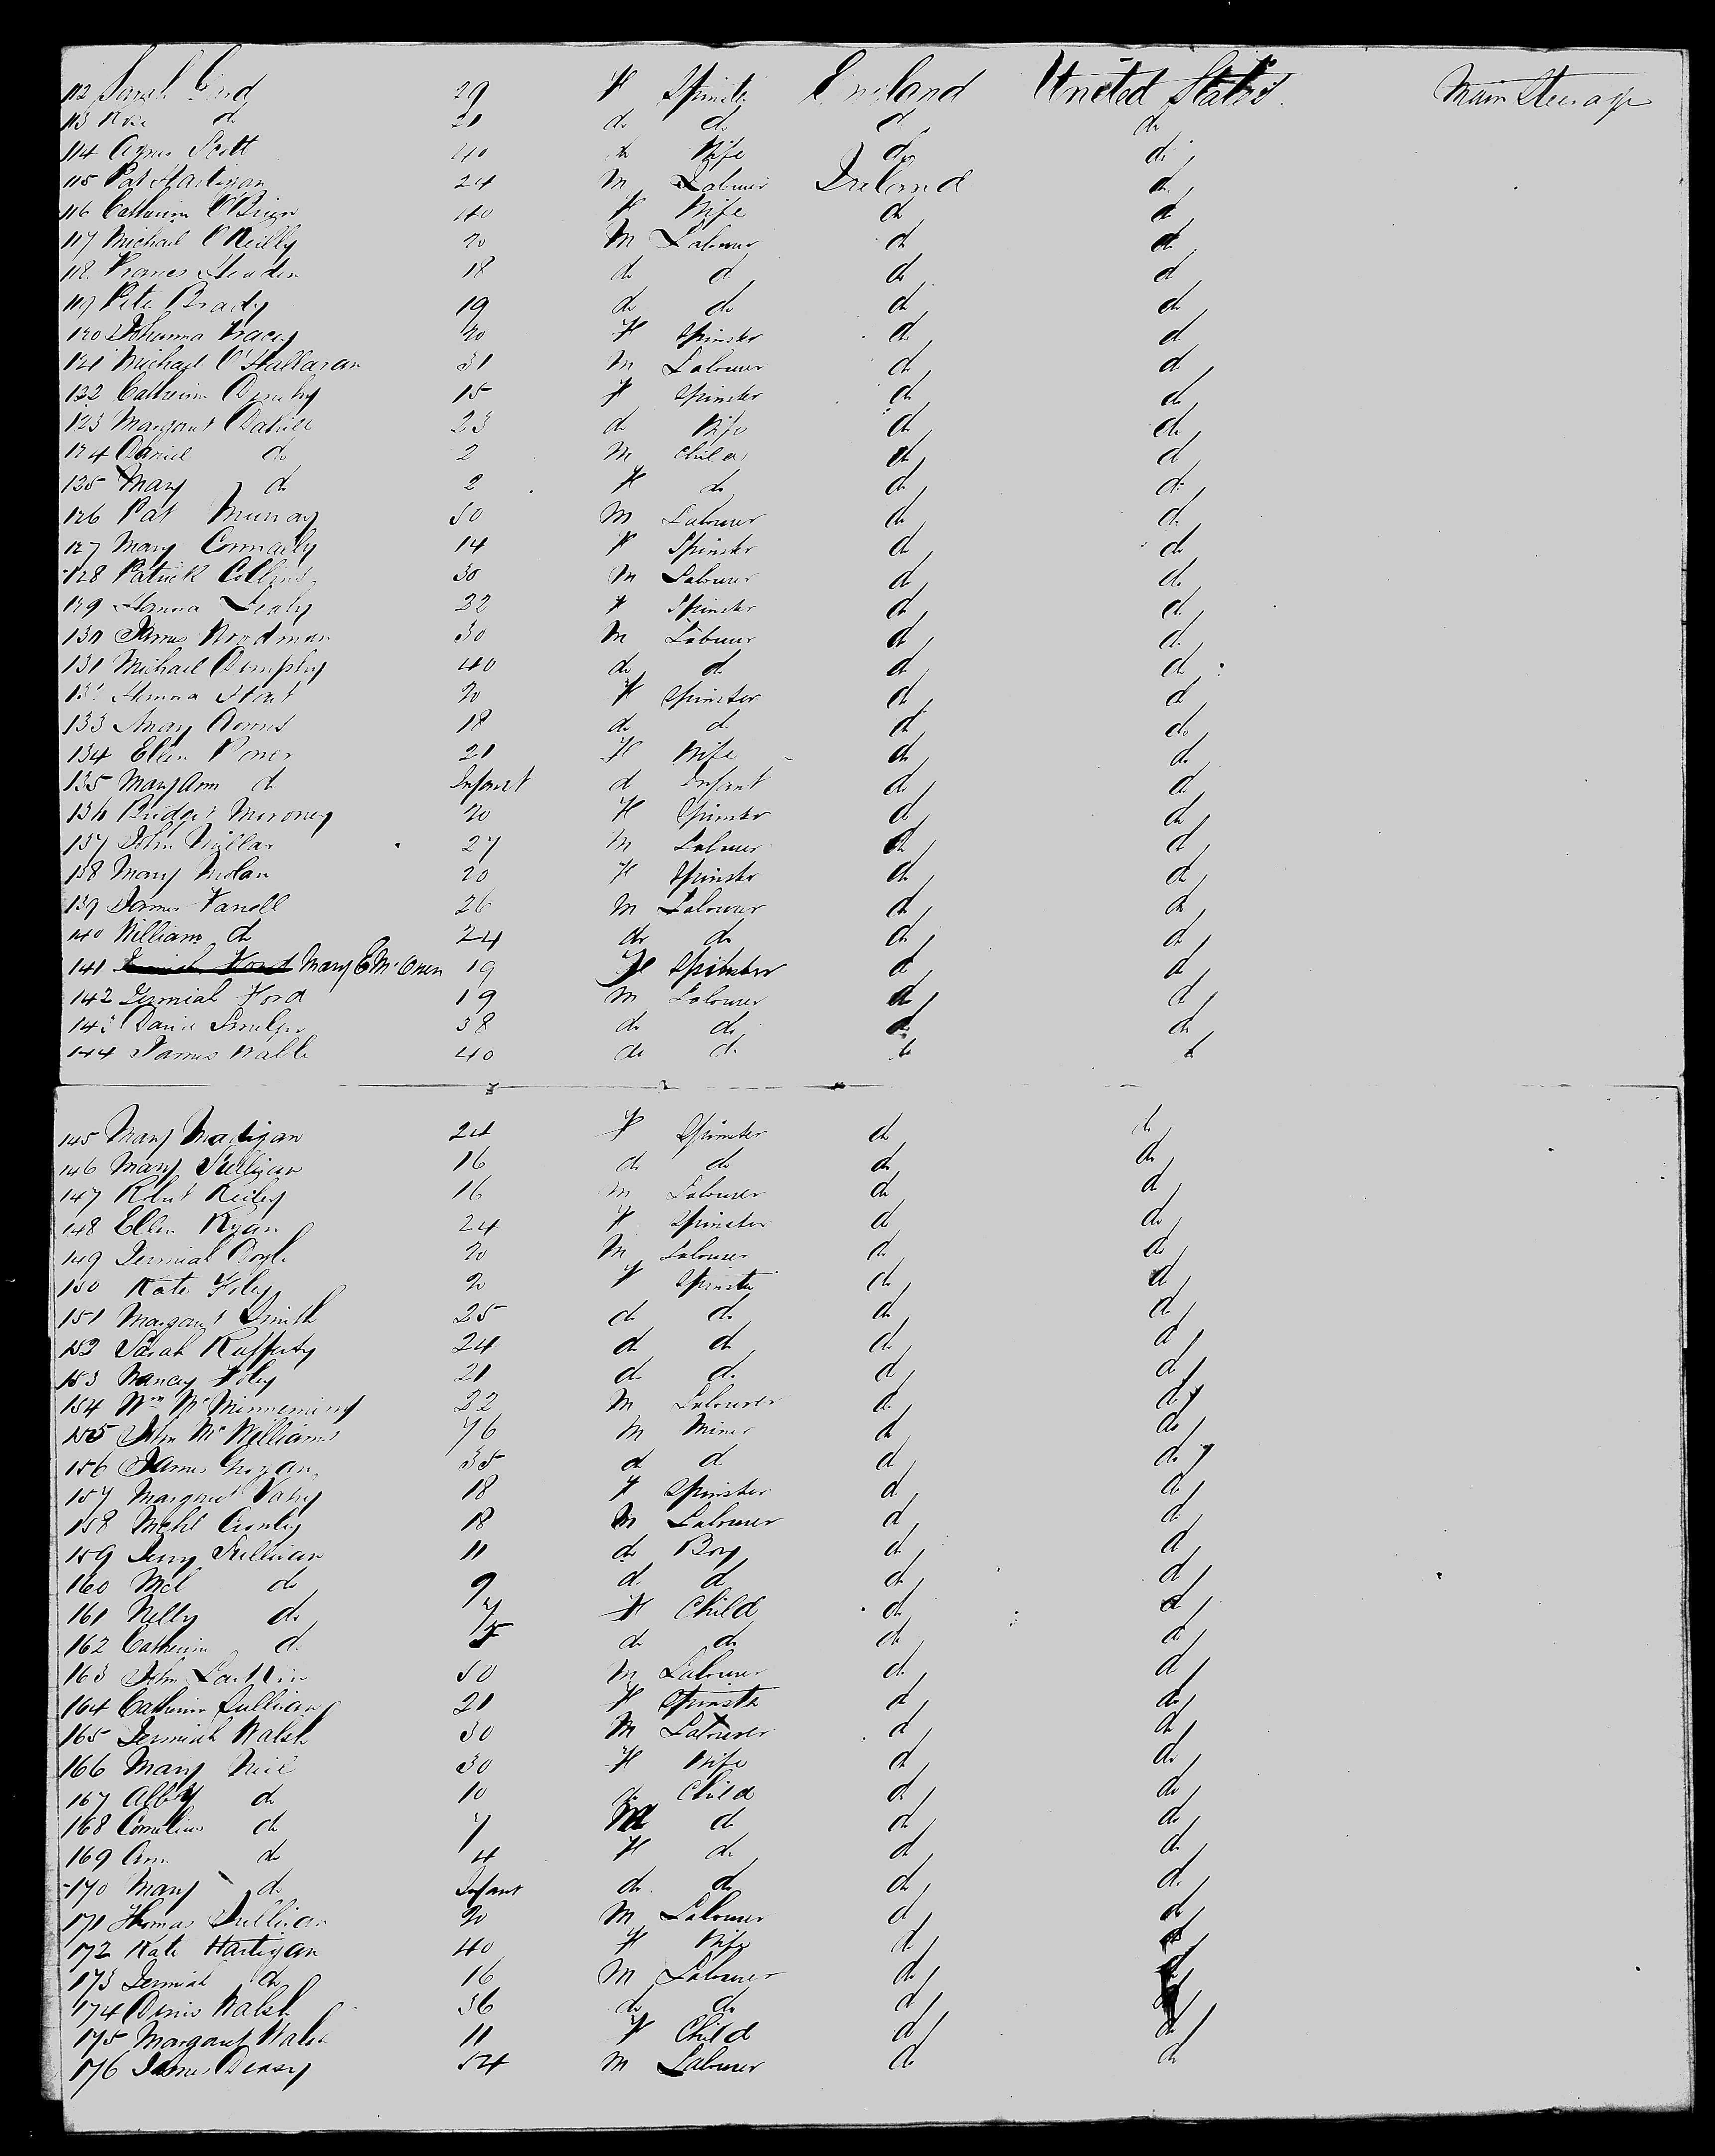 112 Sarah 29 F Spinster England United States Main Steerage
113 do 21 do do do do
114 Agnes Scott 40 do Wife do do
115 Pat Hartigan 24 M Labourer Ireland do
116 Catherine O'Brien 40 F Wife do do
117 Michael O'Reilly 20 M Labourer do do
118 Frances 18 do do do do
119 Pete Brady 19 do do do do
120 Johanna Tracey 20 F Spinster do do
121 Michael O'Hallaran 31 M Labourer do do
122 Catherine 15 F Spinster do do
123 Margaret Cahill 23 do Wife do do
124 Daniel do 2 M Child do do
125 Mary do 2 F do do do
126 Pat Murray 50 M Labourer do do
127 Mary Connolly 14 F Spinster do do
128 Patrick Collins 30 M Labourer do do
129 Hanora Leahy 22 F Spinster do do
130 James Woodman 30 M Labourer do do
131 Michael Dumphy 40 do do do do
13 Hanora 20 F Spinster do do
133 18 do do do do
134 Ellen Power 21 F Wife do do
135 Mary Ann do Infant do Infant do do
136 Bridget Moroney 20 F Spinster do do
137 John Millar 27 M Labourer do do
138 Mary Nolan 20 F Spinster do do
139 James Farrell 26 M Labourer do do
140 William do 24 do do do do
141 Mary E 19 F Spinster do do
142 Jermiah Ford 19 M Labourer do do
143 38 do do do do
144 James 40 do do do do
145 Mary Madigan 24 F Spinster do do
146 Mary Sullivan 16 do do do do
147 Robert 16 M Labourer do do
148 Ellen Ryan 24 F Spinster do do
149 Jermiah Doyle 20 M Labourer do do
150 Kate Foley 20 F Spinster do do
151 Margaret Smith 25 do do do do
152 Sarah Rafferty 24 do do do do
153 Nancy Foley 21 do do do do
154 Wm 22 M Labourer do do
155 John McWilliams 46 M Miner do do
156 James Grogan 35 do do do do
157 Margaret 18 F Spinster do do
158 Mchl 18 M Labourer do do
159 Jerry Sullivan 11 do Boy do do
160 Mcl do 9 do do do do
161 Nelly do 7 F Child do do
162 Catherine do 5 do do do do
163 John 50 M Labourer do do
164 Catherine Sullivan 21 F Spinster do do
165 Jermiah Walsh 30 M Labourer do do
166 Mary Neil 30 F Wife do do
167 Abby do 10 do Child do do
168 Cornelius do 7 M do do do
169 Ann do 4 F do do do
170 Mary do Infant do do do do
171 Thomas Sullivan 20 M Labourer do do
172 Kate Hartigan 40 F Wife do do
173 Jermiah do 16 M Labourer do do
174 Denis Walsh 36 do do do do
175 Margaret Walsh 11 F Child do do
176 James 54 M Labourer do do